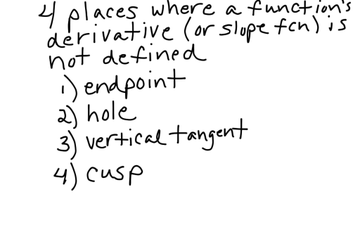 4 places where a function's
derivative (or slope fcn) is
not defined
1) endpoint
2) hole
3) vertical tangent
4) cusp